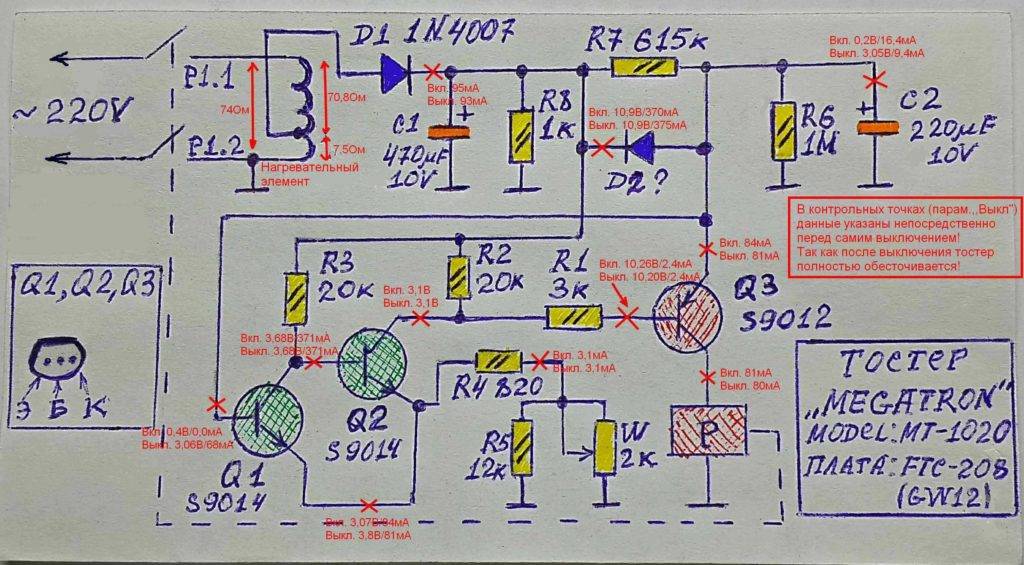 D1 1N4007
R7 615к
Вкл. 0,2В/16,4мА
Выкл. 3.05В/9,4мА
~220V
P1.1
74Ом
70,8Ом
7,5Ом
P1.2
Нагревательный
элемент
Вкл. 95мА
Выкл. 93мА
+
C1
470µF
10V
R8
1к
Вкл. 10,9В/370мА
Выкл. 10,9В/375мА
D2?
R6
1М
+
C2
220µF
10V
В контрольных точках (парам.,,Выкл")
данные указаны непосредственно
перед самим выключением!
Так как после выключения тостер
полностью обесточивается!
Q1,Q2,Q3
Э Б К
R3
20к
R2
20к
R1
3к
Вкл. 10,26В/2,4мА
Выкл. 10,20В/2,4мА
Вкл. 84мА
Выкл. 81мА
Q3
S9012
Вкл. 3,1В
Выкл. 3,1В
Вкл. 3,68В/371мА
Выкл. 3,68В/371мА
Q2
S9014
Вкл. 0,4В/0,0мА
Выкл. 3,06В/68мА
Q1
S9014
Вкл. 3,07В/84мА
Выкл. 3,8В/81мА
R4 820
Вкл. 3,1мА
Выкл. 3,1мА
R5
12к
W
2к
Вкл. 81мА
Выкл. 80мА
P
ТОСТЕР
„MEGATRON"
MODEL: MT-1020
ПЛАТА: FTC-208
(GW12)